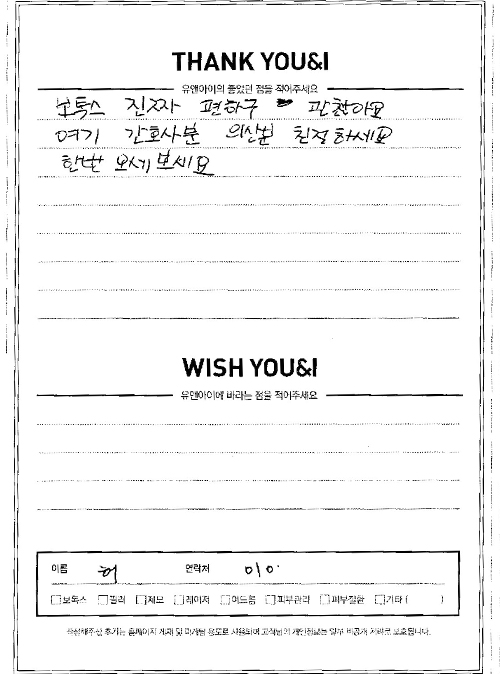 THANK YOU&I
유앤아이의 좋았던 점을 적어주세요
보톡스 진짜 편하구 괜찮아요
여기 간호사분 의산분 친절하세요
한번 오세 보세요
WISH YOU&I
유앤아이에 바라는 점을 적어주세요
이름 허 연락처 010
보톡스 필러 제모 레이저 여드름 피부관리 피부질환 기타 ( )
작성해주신 후기는 홈페이지 게재 및 마케팅 용도로 사용되며 고객님의 개인정보는 일부 비공개 처리로 보호됩니다.